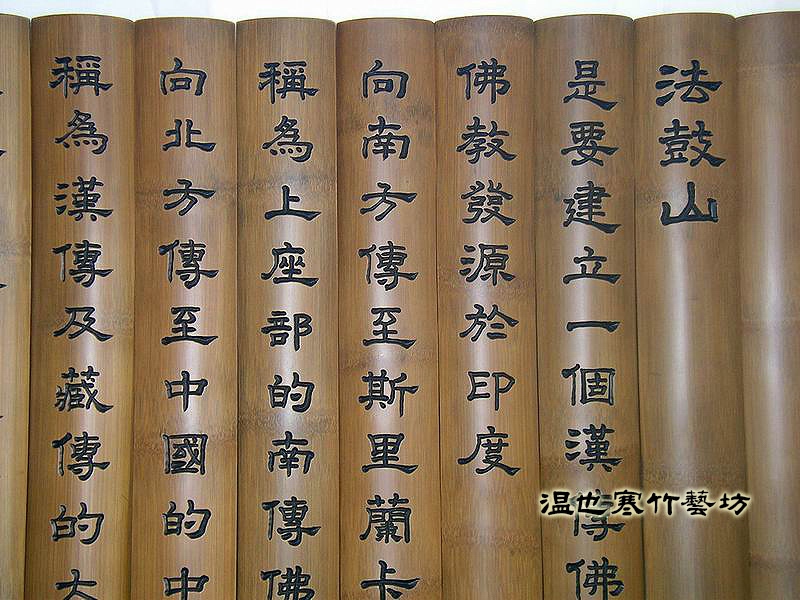 法鼓山
是要建立一個漢傳佛
佛教發源於印度
向南方傳至斯里蘭卡
稱為上座部的南傳佛
向北方傳至中國的中
稱為漢傳及藏傳的大
温也寒竹藝坊